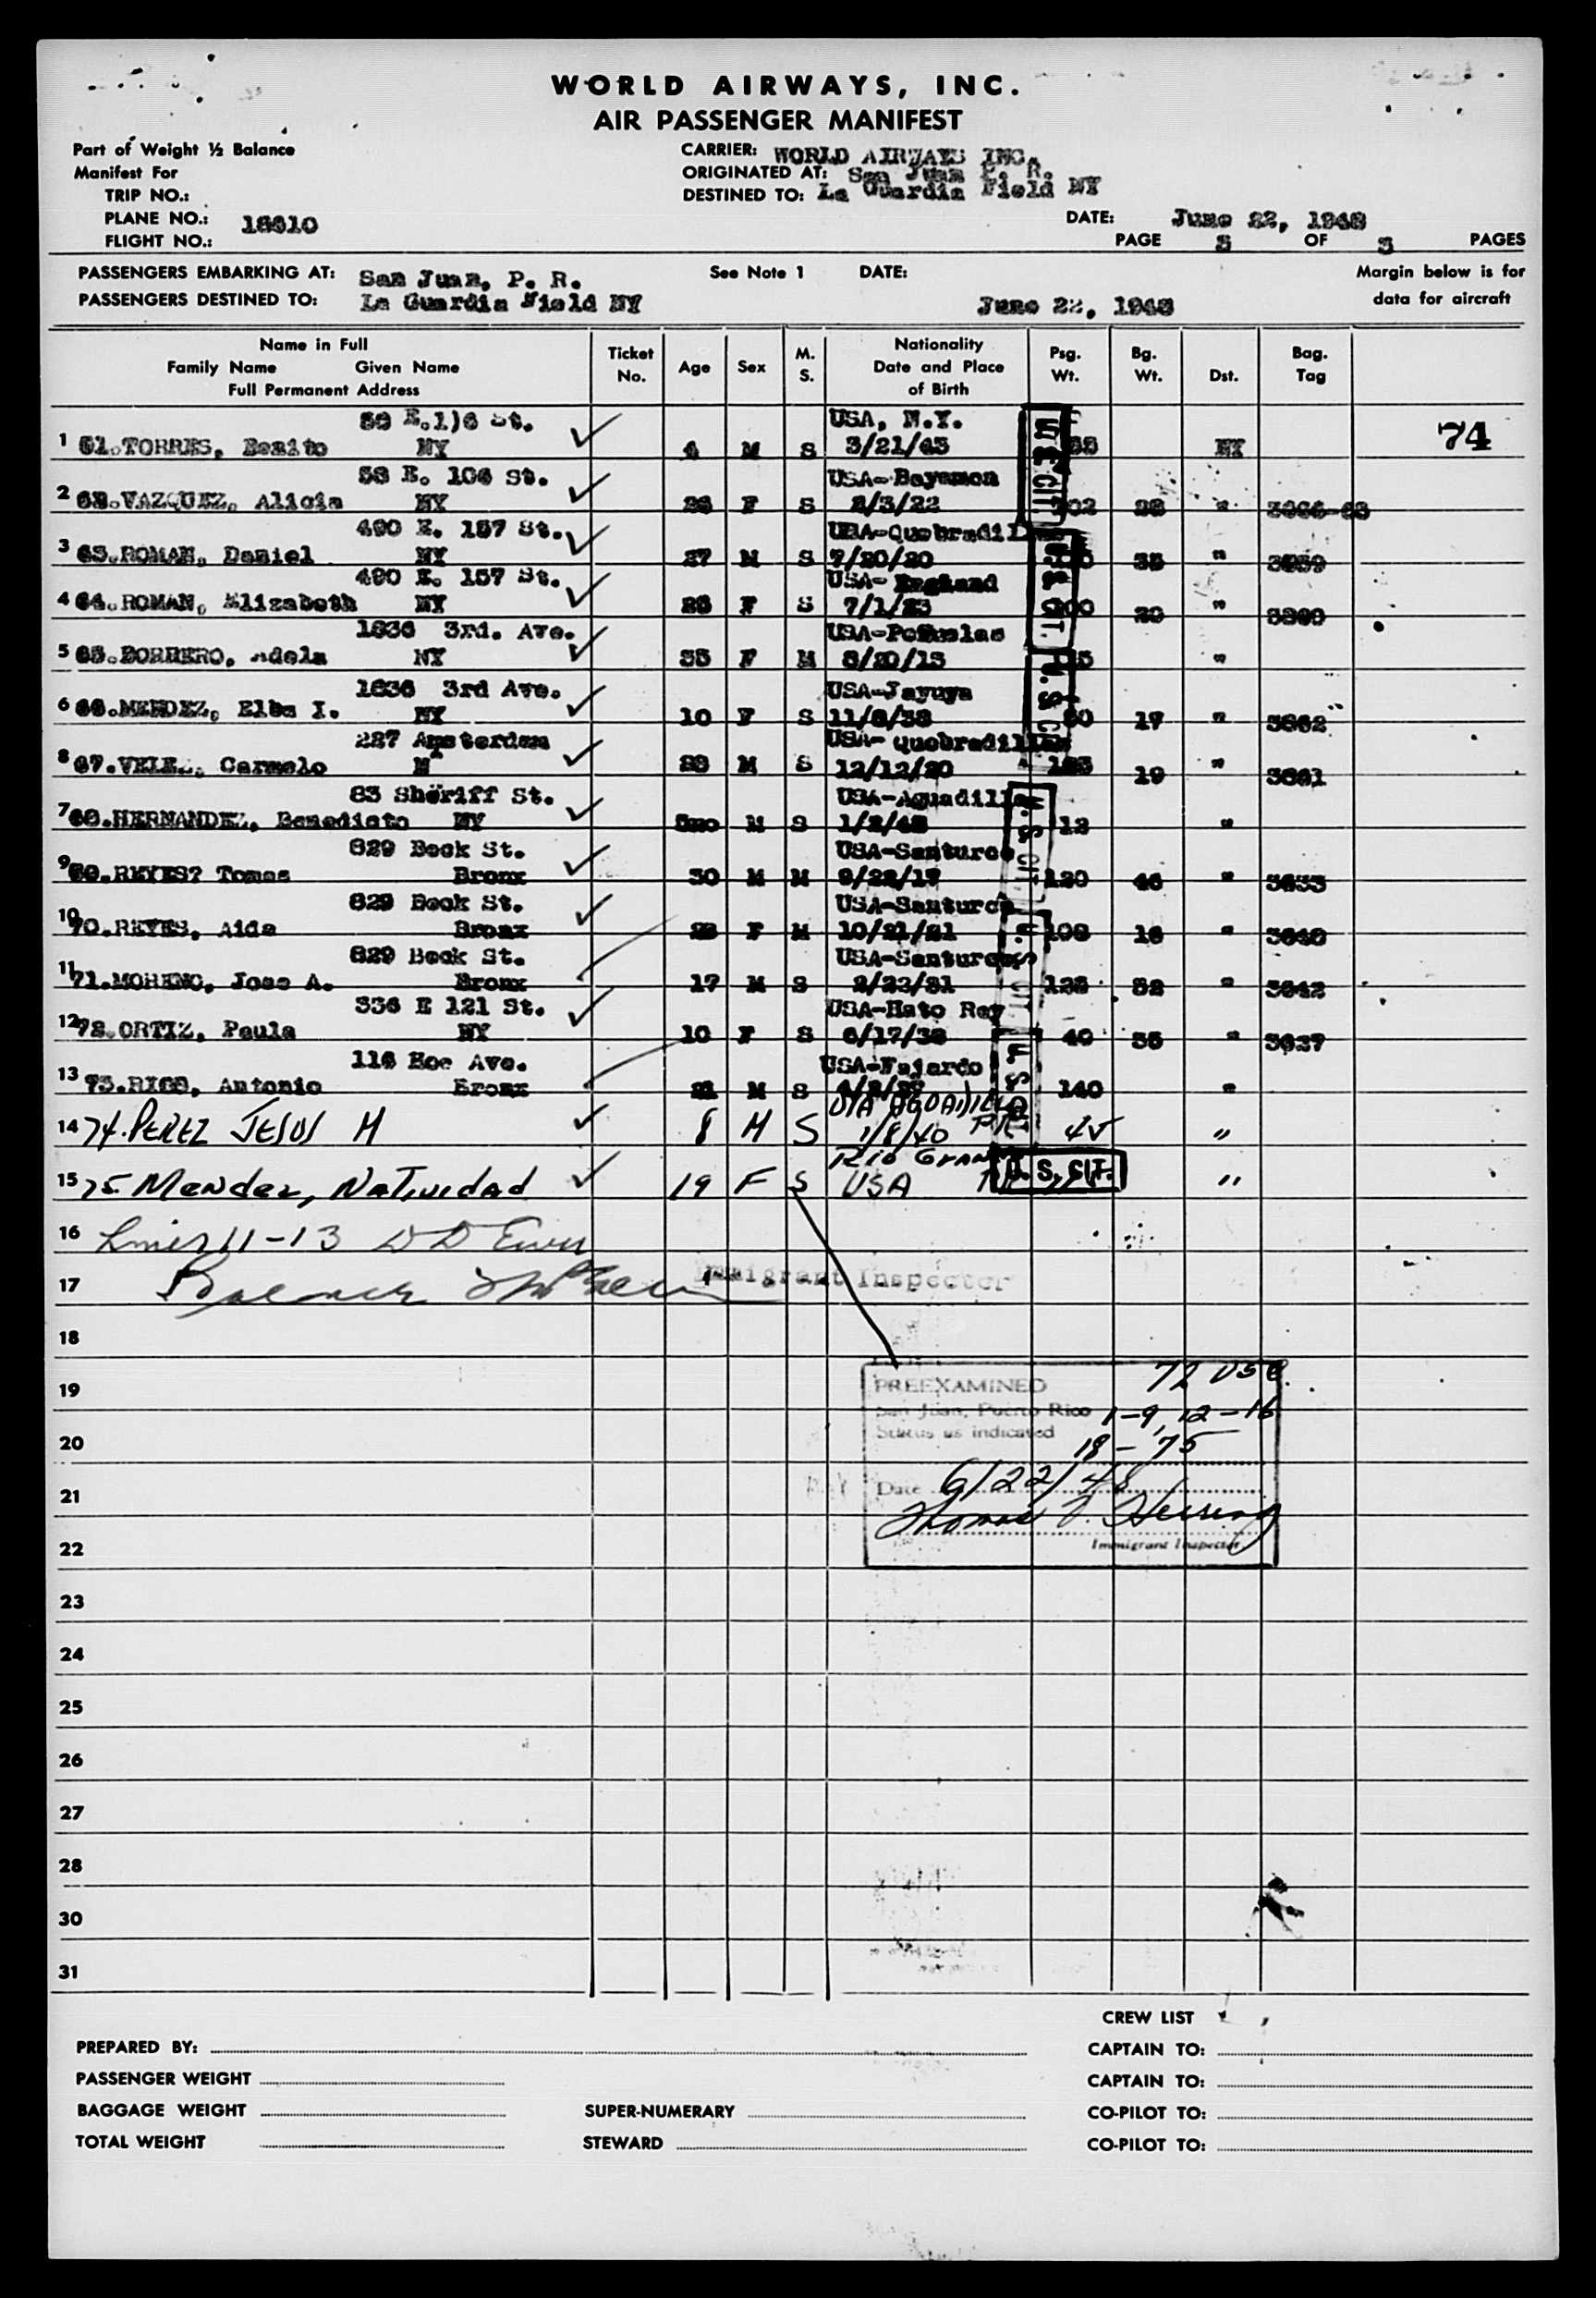 WORLD AIRWAYS, INC.
AIR PASSENGER MANIFEST
Part of Weight ½ Balance
Manifest For
TRIP NO.:
PLANE NO.: 18610
FLIGHT NO.:
CARRIER: WORLD AIRWAYS INC.
ORIGINATED AT: San Juan P. R.
DESTINED TO: La Guardia Field NY
DATE: June 22, 1948
PAGE 3 OF 3 PAGES
PASSENGERS EMBARKING AT: San Juan, P. R.
PASSENGERS DESTINED TO: La Guardia Field NY
See Note 1 DATE: June 22, 1948
Margin below is for
data for aircraft
Name in Full
Family Name Given Name
Full Permanent Address
Ticket No.
Age
Sex
M. S.
Nationality
Date and Place
of Birth
Psg. Wt.
Bg. Wt.
Dst.
Bag. Tag
St. USA, N.Y.
1 61.TORRES, Benito NY M S 3/21/43 NY 74
E. 106 St. USA-Bayamon
2 62.VAZQUEZ, Alicia NY 26 F S 2/3/22 102 "
490 E. 157 St. USA-Quebradil
3 63.ROMAN, Daniel NY 27 M S 7/20/20 35 " 3859
490 E. 157 St. USA- England
4 64.ROMAN, Elizabeth NY F S 7/1/23 "
1836 3rd. Ave. USA-Peñuelas
5 65.BORRERO, Adela NY 35 F M 8/20/13 "
1836 3rd Ave. USA-Jayuya
6 66.MENDEZ, Elba I. NY 10 F S 11/8/38 17 "
227 Amsterdam USA- Quebradillas
8 67.VELEZ, Carmelo M S 12/12/20 19 "
83 Sheriff St. USA-Aguadilla
7 68.HERNANDEZ, Benedicto NY 5mo M S 1/2/48 12 "
829 Beck St. USA-Santurce
9 69.REYES? Tomas Bronx 30 M M 9/22/17 120 46 "
829 Beck St. USA-Santurce
10 70.REYES, Aida Bronx F M 10/21/21 108 16 "
829 Beck St. USA-Santurce
11 71.MORENO, Jose A. Bronx 17 M S 2/23/31 "
336 E 121 St. USA-Hato Rey
12 72.ORTIZ, Paula NY 10 F S 6/17/38 40 35 " 3837
116 Ave. USA-Fajardo
13 73.RIOS, Antonio Bronx 21 M S 140 "
USA AGUADILLA
14 74. PEREZ JESUS M 8 M S 1/8/40 PR 45 "
RIO GRANDE
15 75. Mendez, Natividad 19 F S USA "
U. S. CIT.
16 Lines 11-13
17 Immigrant Inspector
18
19
20
21
22
PREEXAMINED 72 USC.
San Juan, Puerto Rico 1-9, 12-16
Status as indicated 18-75
Date 6/22/48
Thomas
Immigrant Inspector
23
24
25
26
27
28
30
31
CREW LIST
PREPARED BY: CAPTAIN TO:
PASSENGER WEIGHT CAPTAIN TO:
BAGGAGE WEIGHT SUPER-NUMERARY CO-PILOT TO:
TOTAL WEIGHT STEWARD CO-PILOT TO: